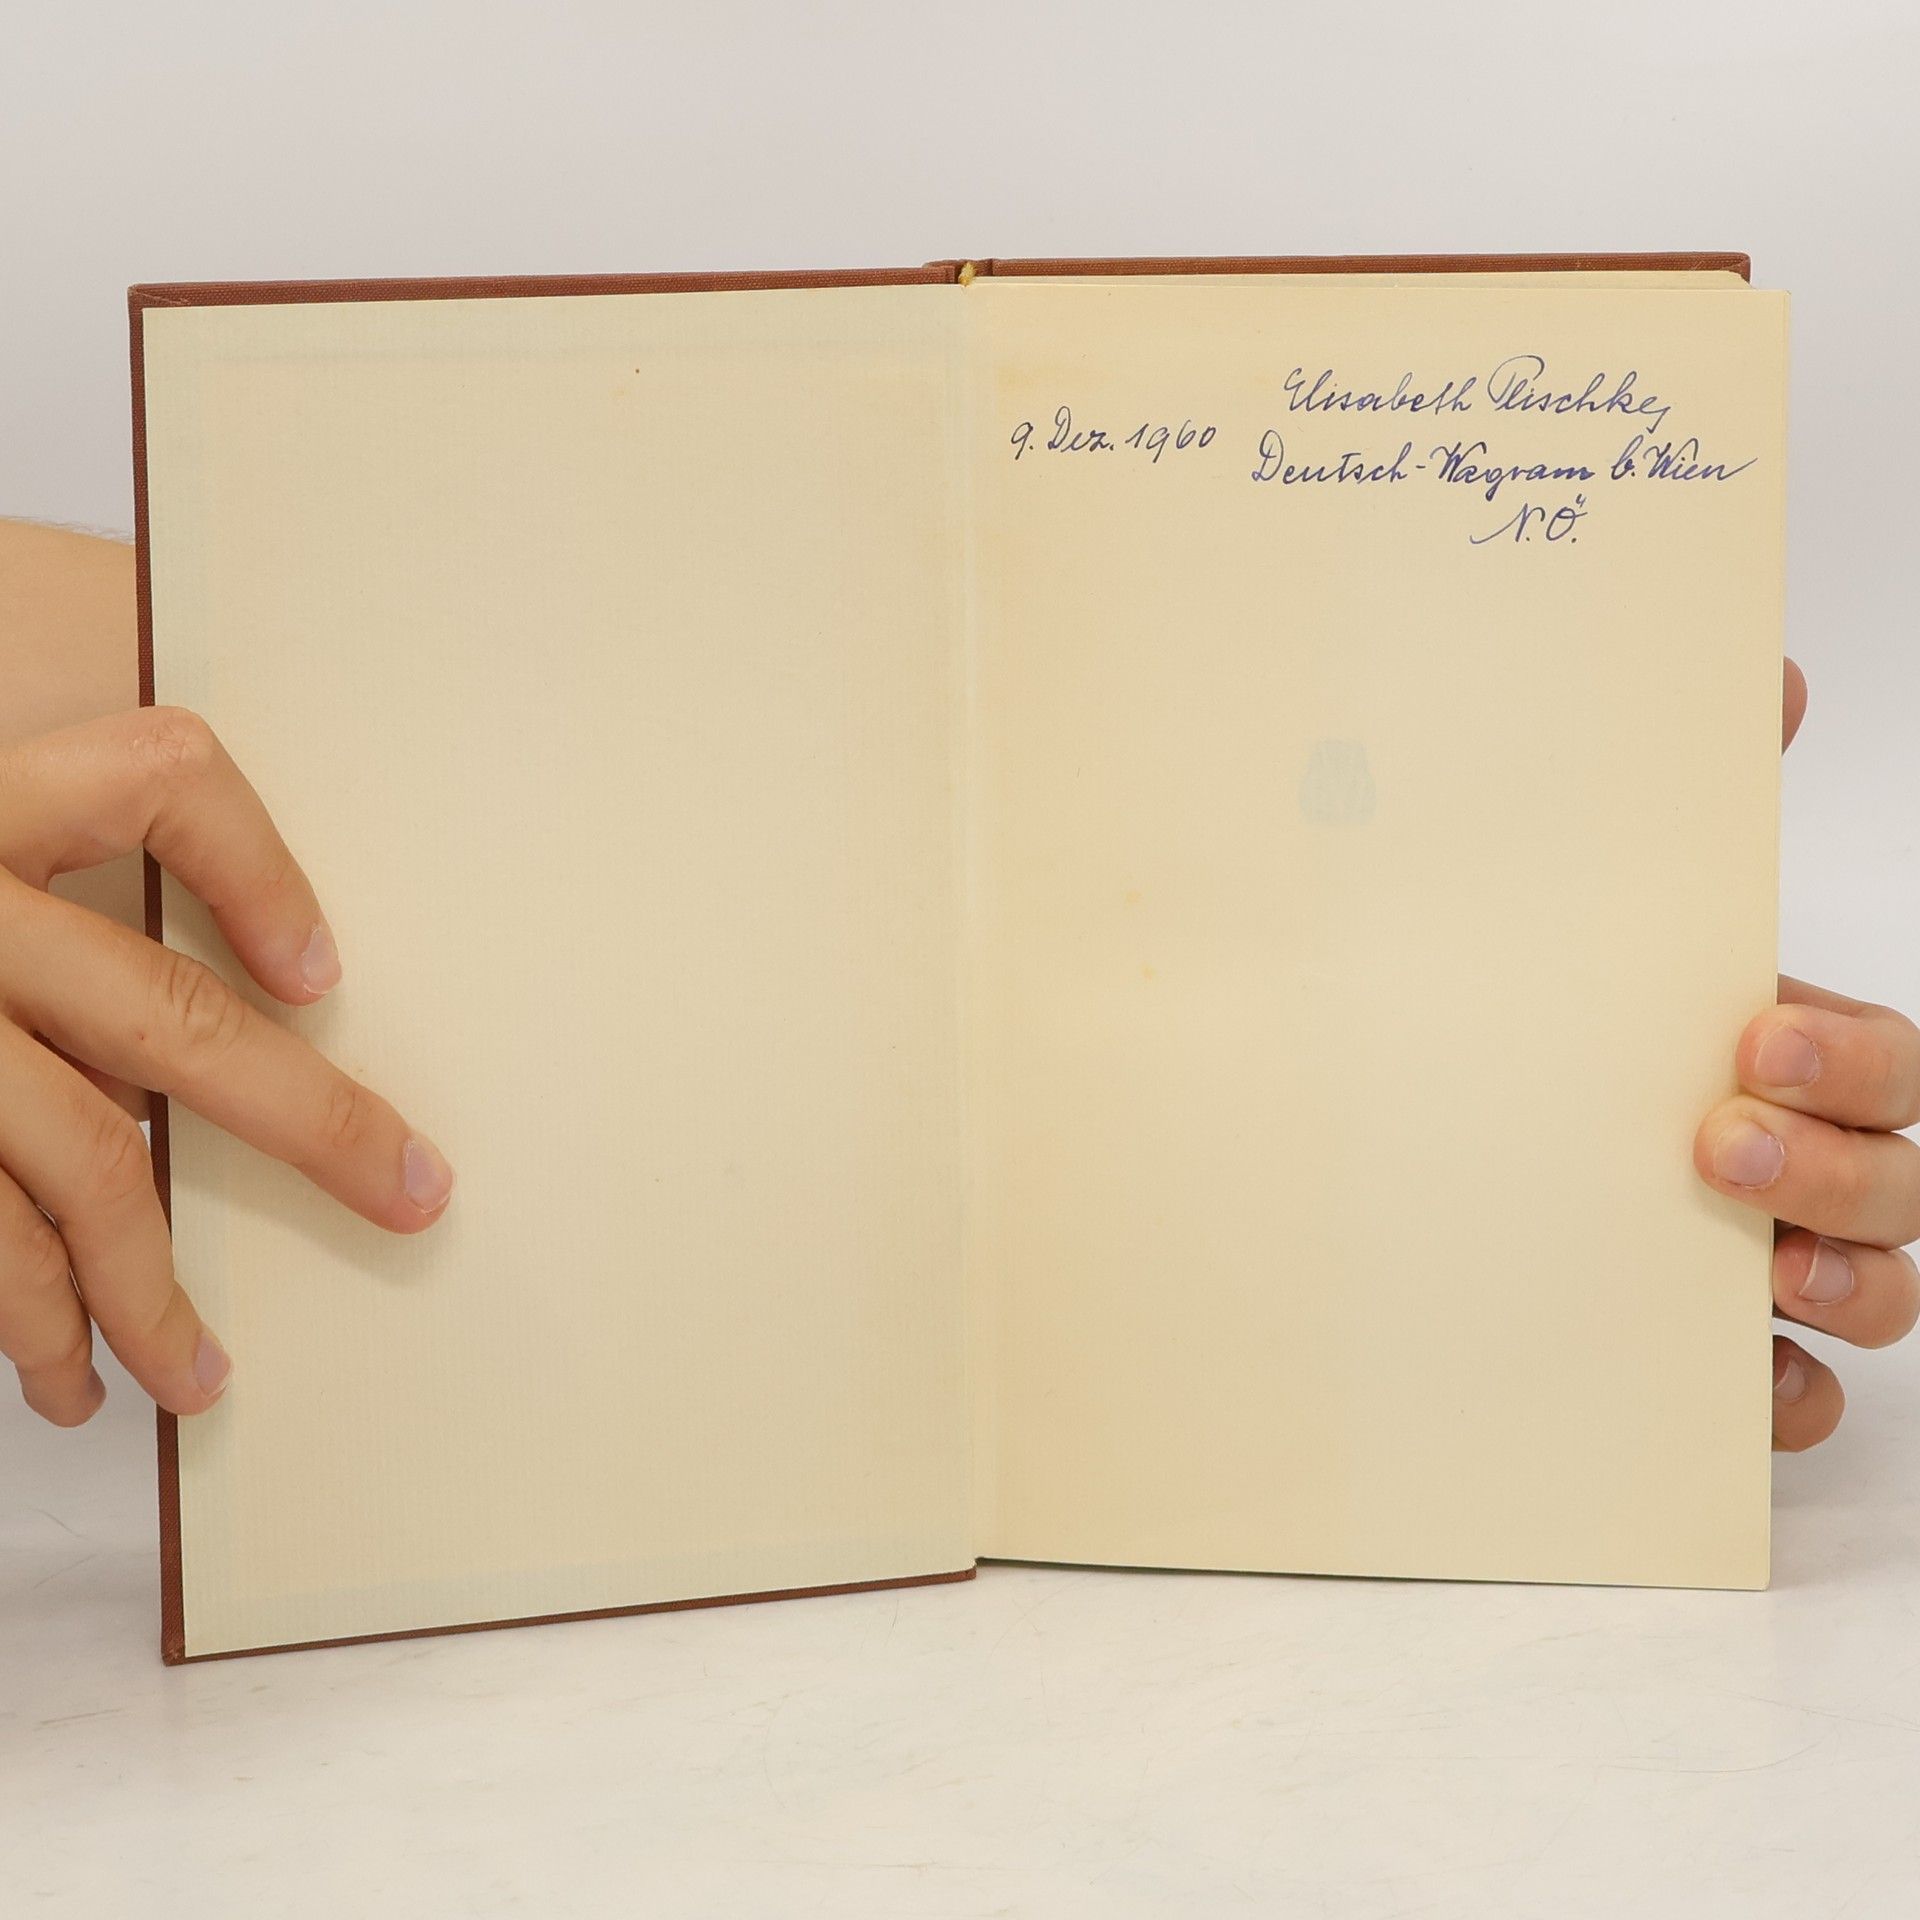 Elisabeth Plischke,
9. Dez. 1960
Deutsch-Wagram b. Wien
N. Ö.